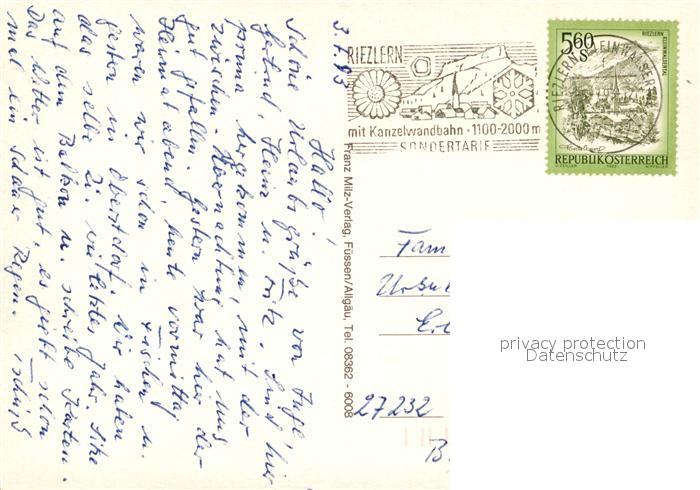 3.7.83
Hallo!
Schöne Urlaubsgrüße von Inge,
Gerlind, Heinz u. Fritz. Sind hier
prima hergekommen, mit der
zwischen Übernachtung hat uns
gut gefallen. Gestern war hier der
Heimatabend, heute vormittag
waren wir schon in Fischen u.
gestern in Oberstdorf. Wir haben
das selbe Zi. wie letztes Jahr. Sitze
auf dem Balkon u. schreibe Karten.
Das Wetter ist gut, es giebt schon
mal ein Schauer Regen. Tschüß
Franz Milz-Verlag, Füssen/Allgäu, Tel. 08362 - 6008
RIEZLERN
mit Kanzelwandbahn - 1100-2000 m
SONDERTARIF
5.60
S
RIEZLERN
KLEINWALSERTAL
RIEZLERN
REPUBLIK ÖSTERREICH
Fam
27232
B
privacy protection
Datenschutz